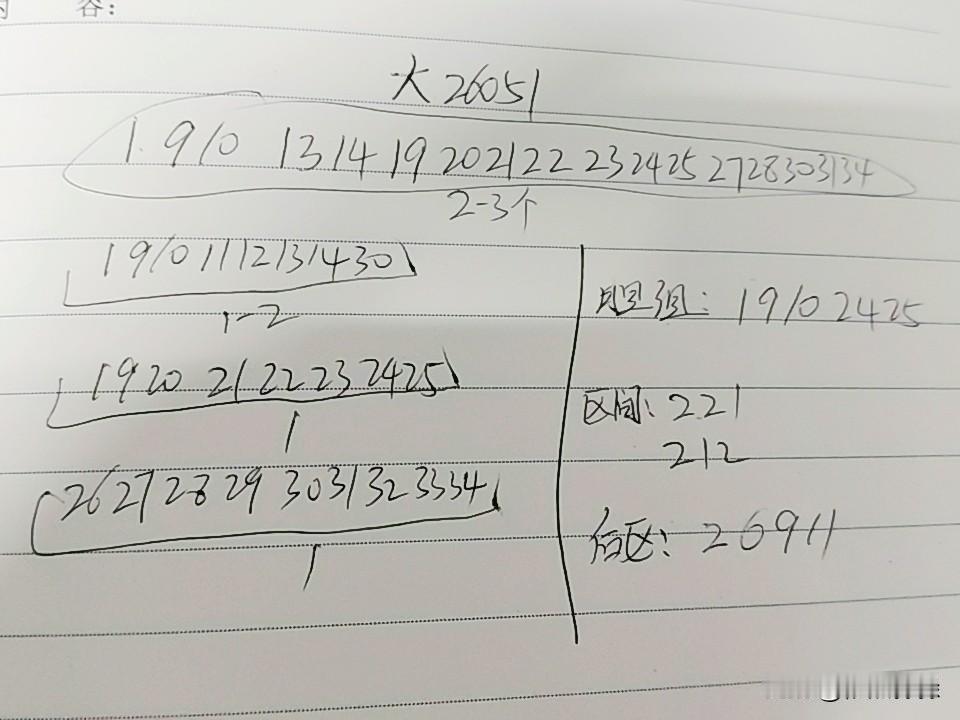 容:
大26051
1.910 1314 19 202122 232425 2728303134
2-3个
1910111213141430
1-2
1920 21 22232425
1
262728 29 3031323334
1
胆组: 19102425
区间: 221
212
后区: 26911